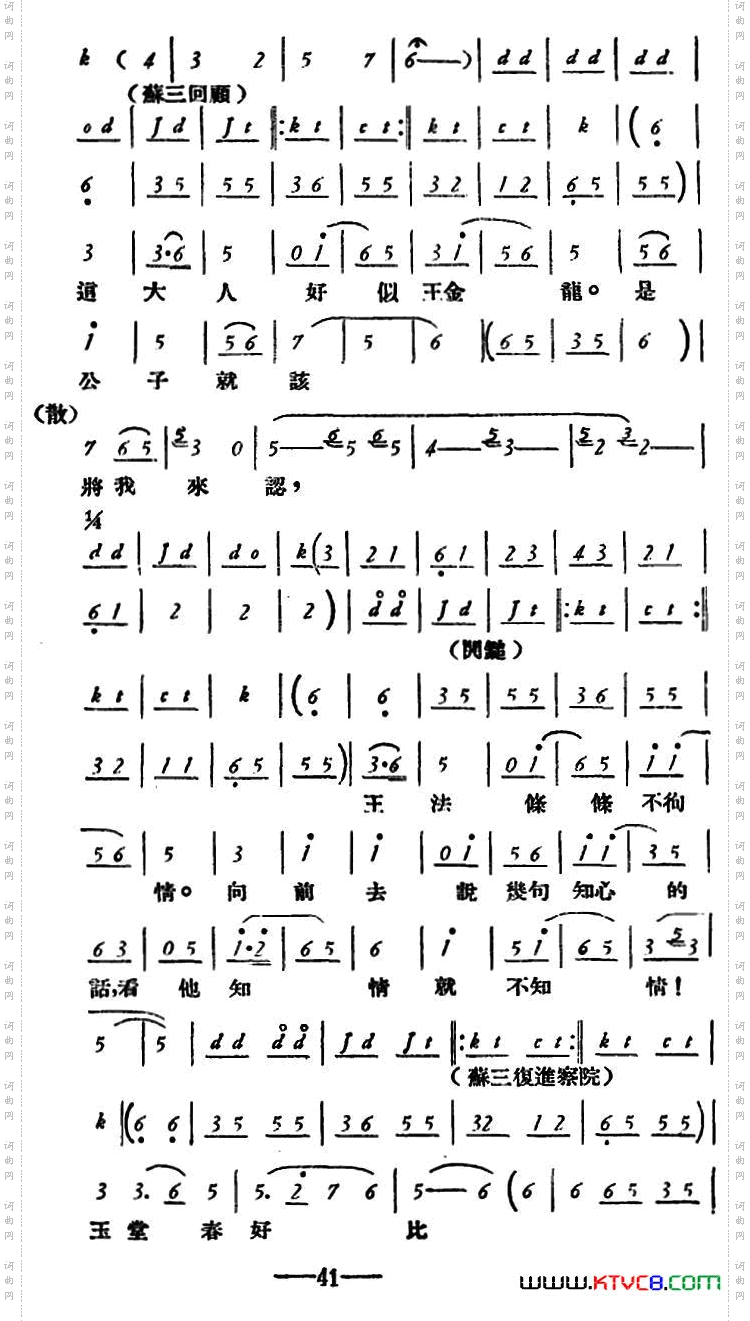 k ( 4 | 3 2 | 5 7 | 6—— ) | d d | d d | d d |
(蘇三回顧)
o d | J d | J t ‖: k t | c t :‖ k t | c t | k | ( 6 |
6 | 3 5 | 5 5 | 3 6 | 5 5 | 3 2 | 1 2 | 6 5 | 5 5 ) |
3 | 3·6 | 5 | 0 i | 6 5 | 3 i | 5 6 | 5 | 5 6 |
這 大 人 好 似 王金 龍。是
i | 5 | 5 6 | 7 | 5 | 6 | ( 6 5 | 3 5 | 6 ) |
公 子 就 該
(散)
7 6 5 | 5 3 0 | 5—— 6 5 6 5 | 4—— 5 3—— | 5 2 3 2—— |
將我 來 認,
1/4
d d | J d | d o | k ( 3 | 2 1 | 6 1 | 2 3 | 4 3 | 2 1 |
6 1 | 2 | 2 | 2 ) | d d | J d | J t ‖: k t | c t :‖
(閃鎚)
k t | c t | k | ( 6 | 6 | 3 5 | 5 5 | 3 6 | 5 5 |
3 2 | 1 1 | 6 5 | 5 5 ) | 3·6 | 5 | 0 i | 6 5 | i i |
王 法 條 條 不徇
5 6 | 5 | 3 | i | i | 0 i | 5 6 | i i | 3 5 |
情。向 前 去 說 幾句 知心 的
6 3 | 0 5 | i·2 | 6 5 | 6 | i | 5 i | 6 5 | 3 5 3 |
話,看 他 知 情 就 不知 情!
5 | 5 | d d d d | J d J t ‖: k t c t :‖ k t c t |
(蘇三復進察院)
k | ( 6 6 | 3 5 5 5 | 3 6 5 5 | 3 2 1 2 | 6 5 5 5 ) |
3 3. 6 5 | 5. 2 7 6 | 5—— 6 ( 6 | 6 6 5 3 5 |
玉 堂 春 好 比
——41——
www.KTVC8.com
词曲网